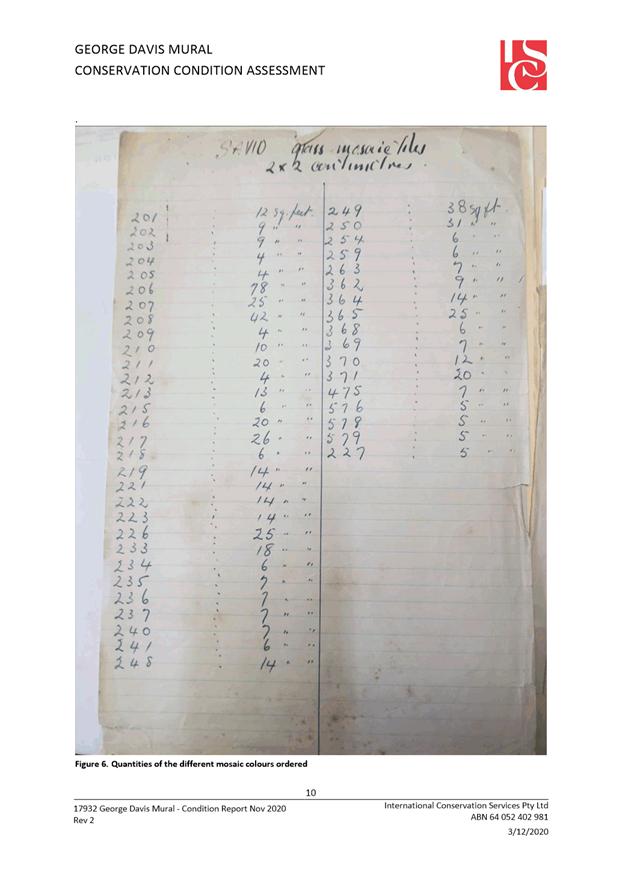 GEORGE DAVIS MURAL
CONSERVATION CONDITION ASSESSMENT
ISC
SAVIO glass mosaic tiles
2 x 2 centimetres.
201 : 12 sq. feet.
202 : 9 " "
203 : 9 " "
204 : 4 " "
205 : 4 " "
206 : 78 " "
207 : 25 " "
208 : 42 " "
209 : 4 " "
210 : 10 " "
211 : 20 " "
212 : 4 " "
213 : 13 " "
215 : 6 " "
216 : 20 " "
217 : 26 " "
218 : 6 " "
219 : 14 " "
221 : 14 " "
222 : 14 " "
223 : 14 " "
226 : 25 " "
233 : 18 " "
234 : 6 " "
235 : 7 " "
236 : 7 " "
237 : 7 " "
240 : 7 " "
241 : 6 " "
248 : 14 " "
249 : 38 sq ft.
250 : 31 " "
254 : 6 " "
259 : 6 " "
263 : 7 " "
362 : 9 " "
364 : 14 " "
365 : 25 " "
368 : 6 " "
369 : 7 " "
370 : 12 " "
371 : 20 " "
475 : 7 " "
576 : 5 " "
578 : 5 " "
579 : 5 " "
227 : 5 " "
Figure 6. Quantities of the different mosaic colours ordered
10
17932 George Davis Mural - Condition Report Nov 2020
Rev 2
International Conservation Services Pty Ltd
ABN 64 052 402 981
3/12/2020